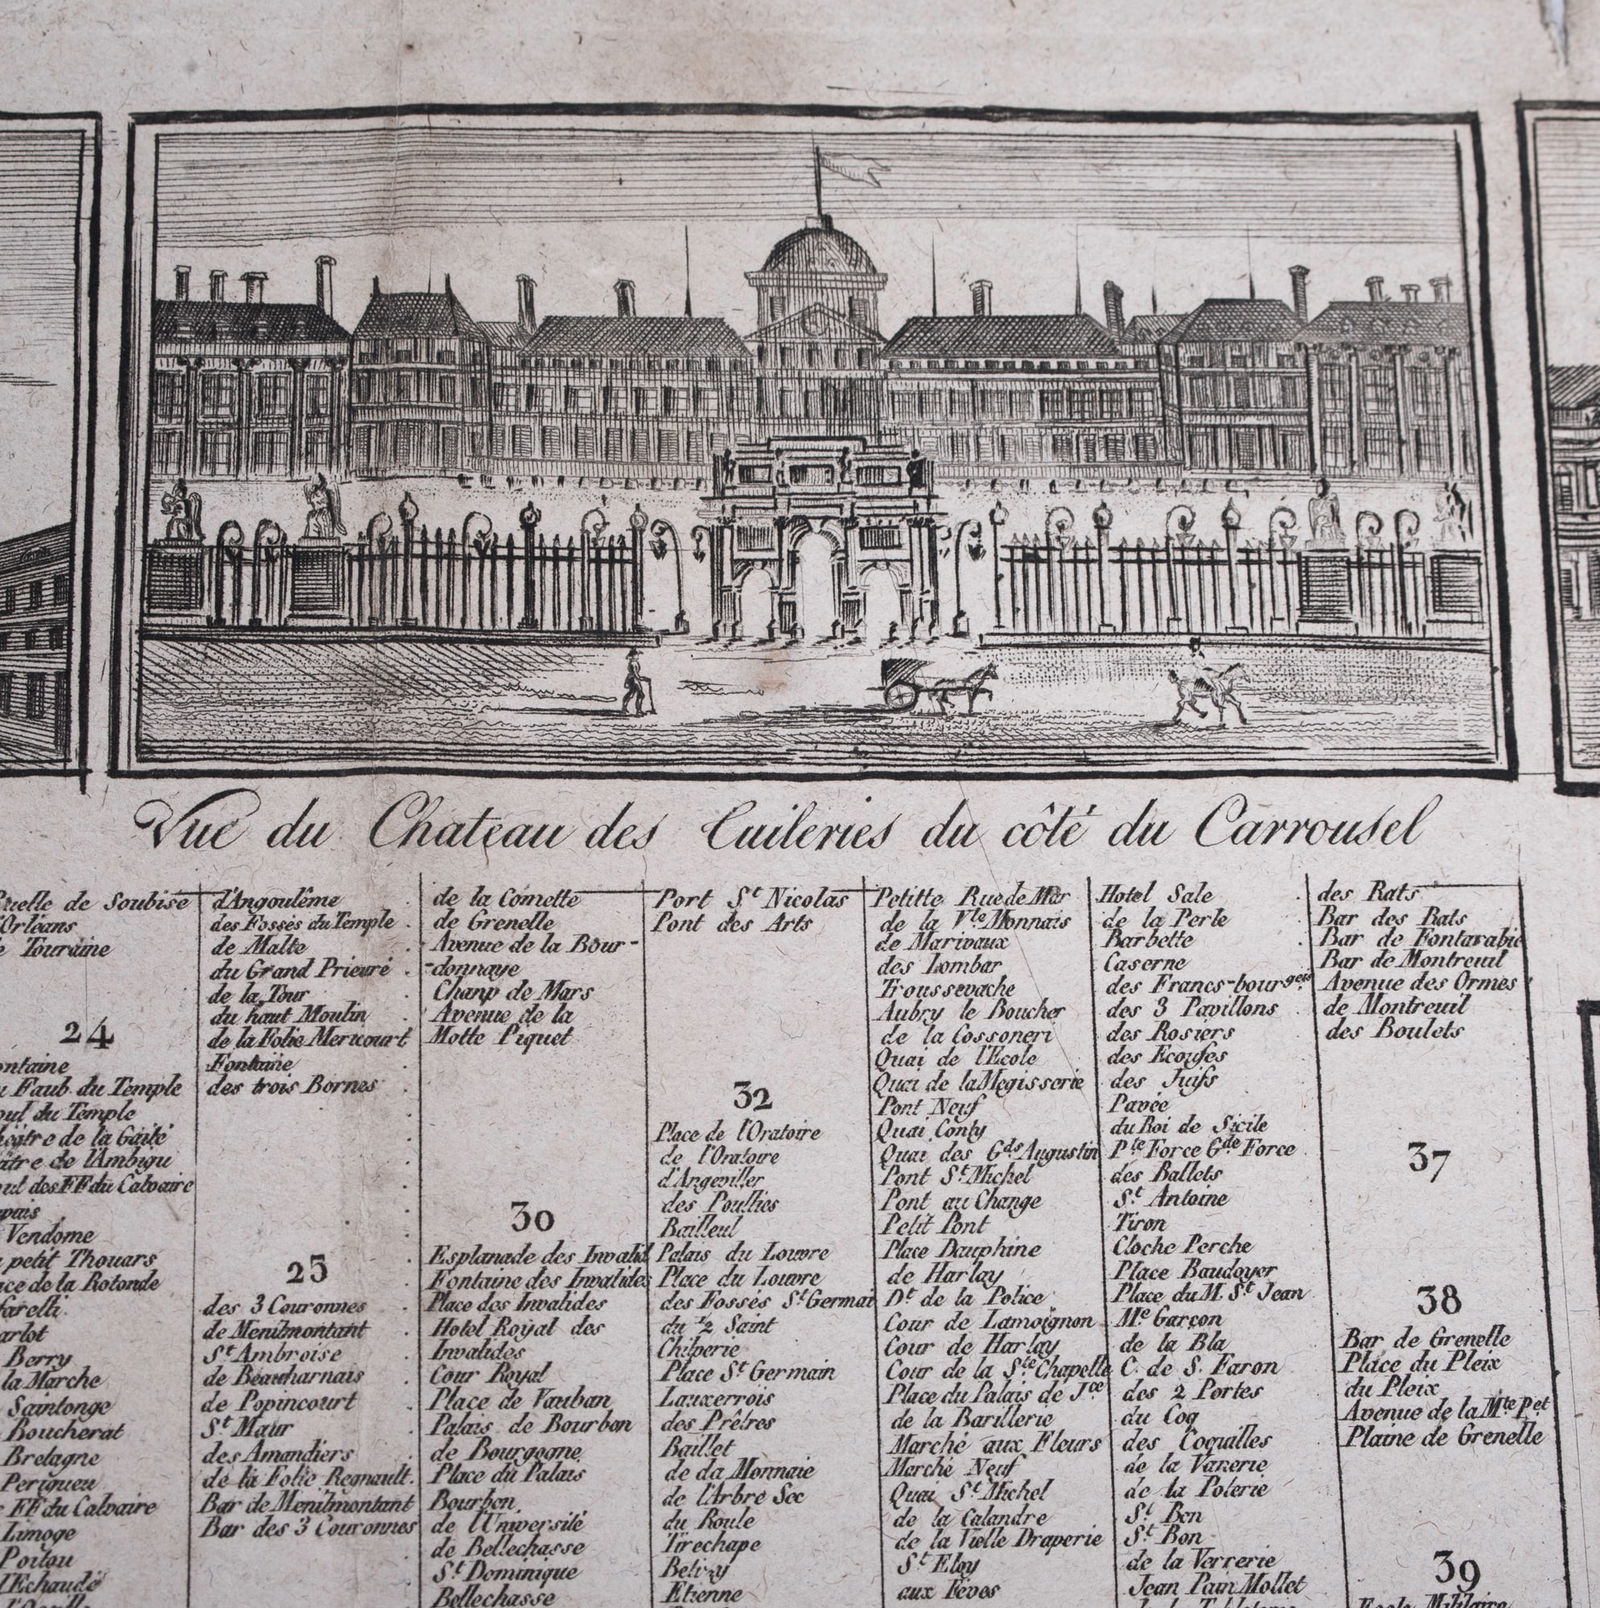 Vue du Chateau des Tuileries du côté du Carrousel
Ruelle de Soubise
d'Orléans
de Touraine
24
Fontaine
du Faub. du Temple
Boul du Temple
Théâtre de la Gaité
Théâtre de l'Ambigu
Boul des FF du Calvaire
Vendome
du petit Thouars
Place de la Rotonde
Charlot
Berry
de la Marche
Saintonge
Boucherat
Bretagne
Perigueu
FF du Calvaire
Limoge
Poitou
l'Echaudé
d'Angoulême
des Fossés du Temple
de Malte
du Grand Prieuré
de la Tour
du haut Moulin
de la Folie Mericourt
Fontaine
des trois Bornes
25
des 3 Couronnes
de Menilmontant
St Ambroise
de Beauharnais
de Popincourt
St Maur
des Amandiers
de la Folie Regnault
Bar de Menilmontant
Bar des 3 Couronnes
de la Comette
de Grenelle
Avenue de la Bour-
-donnaye
Chanp de Mars
Avenue de la
Motte Piquet
30
Esplanade des Invalid
Fontaine des Invalides
Place des Invalides
Hotel Royal des
Invalides
Cour Royal
Place de Vauban
Palais de Bourbon
de Bourgogne
Place du Palais
Bourbon
de l'Université
de Bellechasse
St Dominique
Bellechasse
Port St Nicolas
Pont des Arts
32
Place de l'Oratoire
de l'Oratoire
d'Angeviller
des Poullies
Bailleul
Palais du Louvre
Place du Louvre
des Fossés St Germai
Chilperie
Place St Germain
Lauxerrois
des Prêtres
Baillet
de da Monnaie
de l'Arbre Sec
du Roule
Tirechape
Betizy
Etienne
Petitte Rue de Mar
de la Vle Monnais
de Marivaux
des Lombar
Troussevache
Aubry le Boucher
de la Cossoneri
Quai de l'Ecole
Quai de la Megisserie
Pont Neuf
Quai Conty
Quai des Gds Augustin
Pont St Michel
Pont au Change
Petit Pont
Place Dauphine
de Harlay
Dt de la Police
Cour de Lamoignon
Cour de Harlay
Cour de la Ste Chapelle
Place du Palais de Jce
de la Barillerie
Marché aux Fleurs
Marché Neuf
Quai St Michel
de la Calandre
de la Vielle Draperie
St Eloy
aux Féves
Hotel Sale
de la Perle
Barbette
Caserne
des Francs-bourgeis
des 3 Pavillons
des Rosiers
des Ecoufes
des Juifs
Pavée
du Roi de Sicile
Pte Force Gde Force
des Ballets
St Antoine
Tiron
Cloche Perche
Place Baudoyer
Place du M. St Jean
Me Garçon
de la Bla
C. de S. Faron
des 2 Portes
du Coq
des Coquilles
de la Vanerie
de la Poterie
St Bon
St Bon
de la Verrerie
Jean Pain Mollet
des Rats
Bar des Rats
Bar de Fontarabie
Bar de Montreuil
Avenue des Ormes
de Montreuil
des Boulets
37
38
Bar de Grenelle
Place du Pleix
du Pleix
Avenue de la Mte Pet
Plaine de Grenelle
39
Ecole Militaire